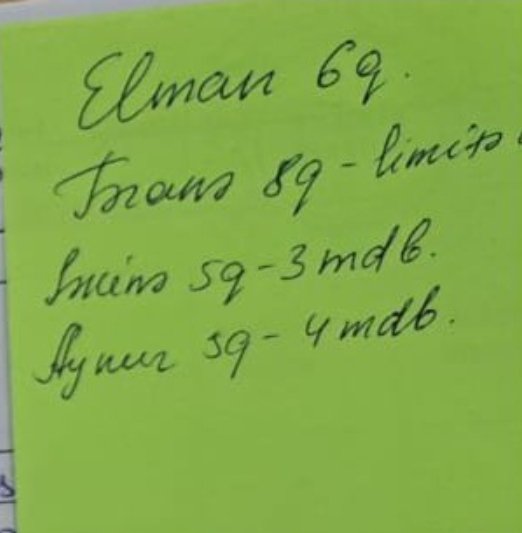 Elman 6q.
8q - limits
5q - 3 mdb.
Aynur 5q - 4 mdb.